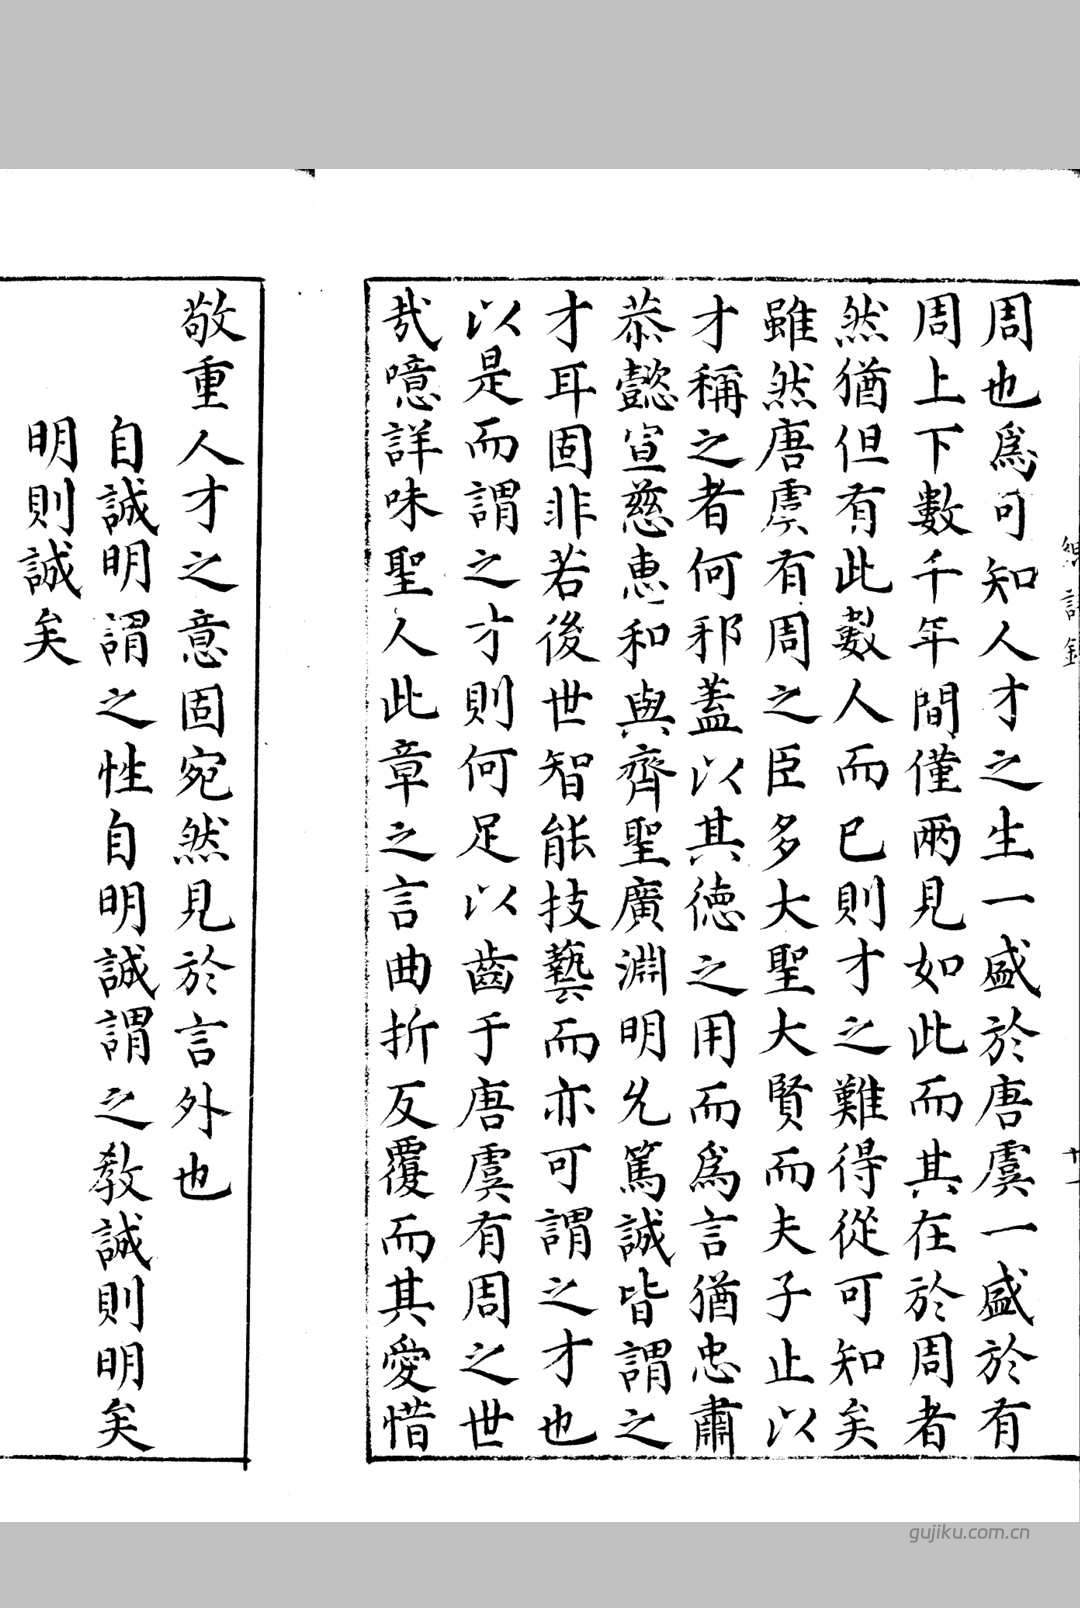 周也爲可知人才之生一盛於唐虞一盛於有
周上下數千年間僅兩見如此而其在於周者
然猶但有此數人而已則才之難得從可知矣
雖然唐虞有周之臣多大聖大賢而夫子止以
才稱之者何邪蓋以其徳之用而爲言猶忠肅
恭懿宣慈惠和與齊聖廣淵明允篤誠皆謂之
才耳固非若後世智能技藝而亦可謂之才也
以是而謂之才則何足以齒于唐虞有周之世
哉噫詳味聖人此章之言曲折反覆而其愛惜
敬重人才之意固宛然見於言外也
自誠明謂之性自明誠謂之教誠則明矣
明則誠矣
gujiku.com.cn